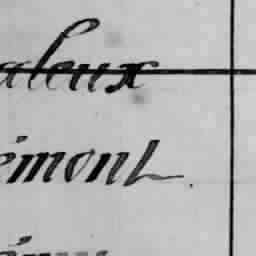 aleux
émont